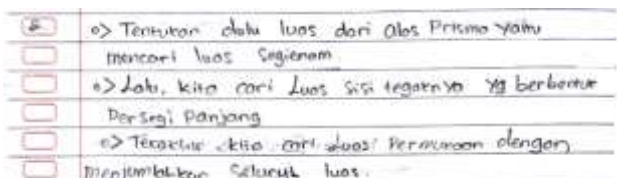 2. o> Tentukan dalu luas dari alas Prisma yaitu
mencari luas Segienam
o> Lalu, kita cari Luas Sisi tegaknya yg berbentuk
Persegi Panjang
o> Terakhir kita cari luas Permukaan dengan
Menjumlahkan Seluruh luas.